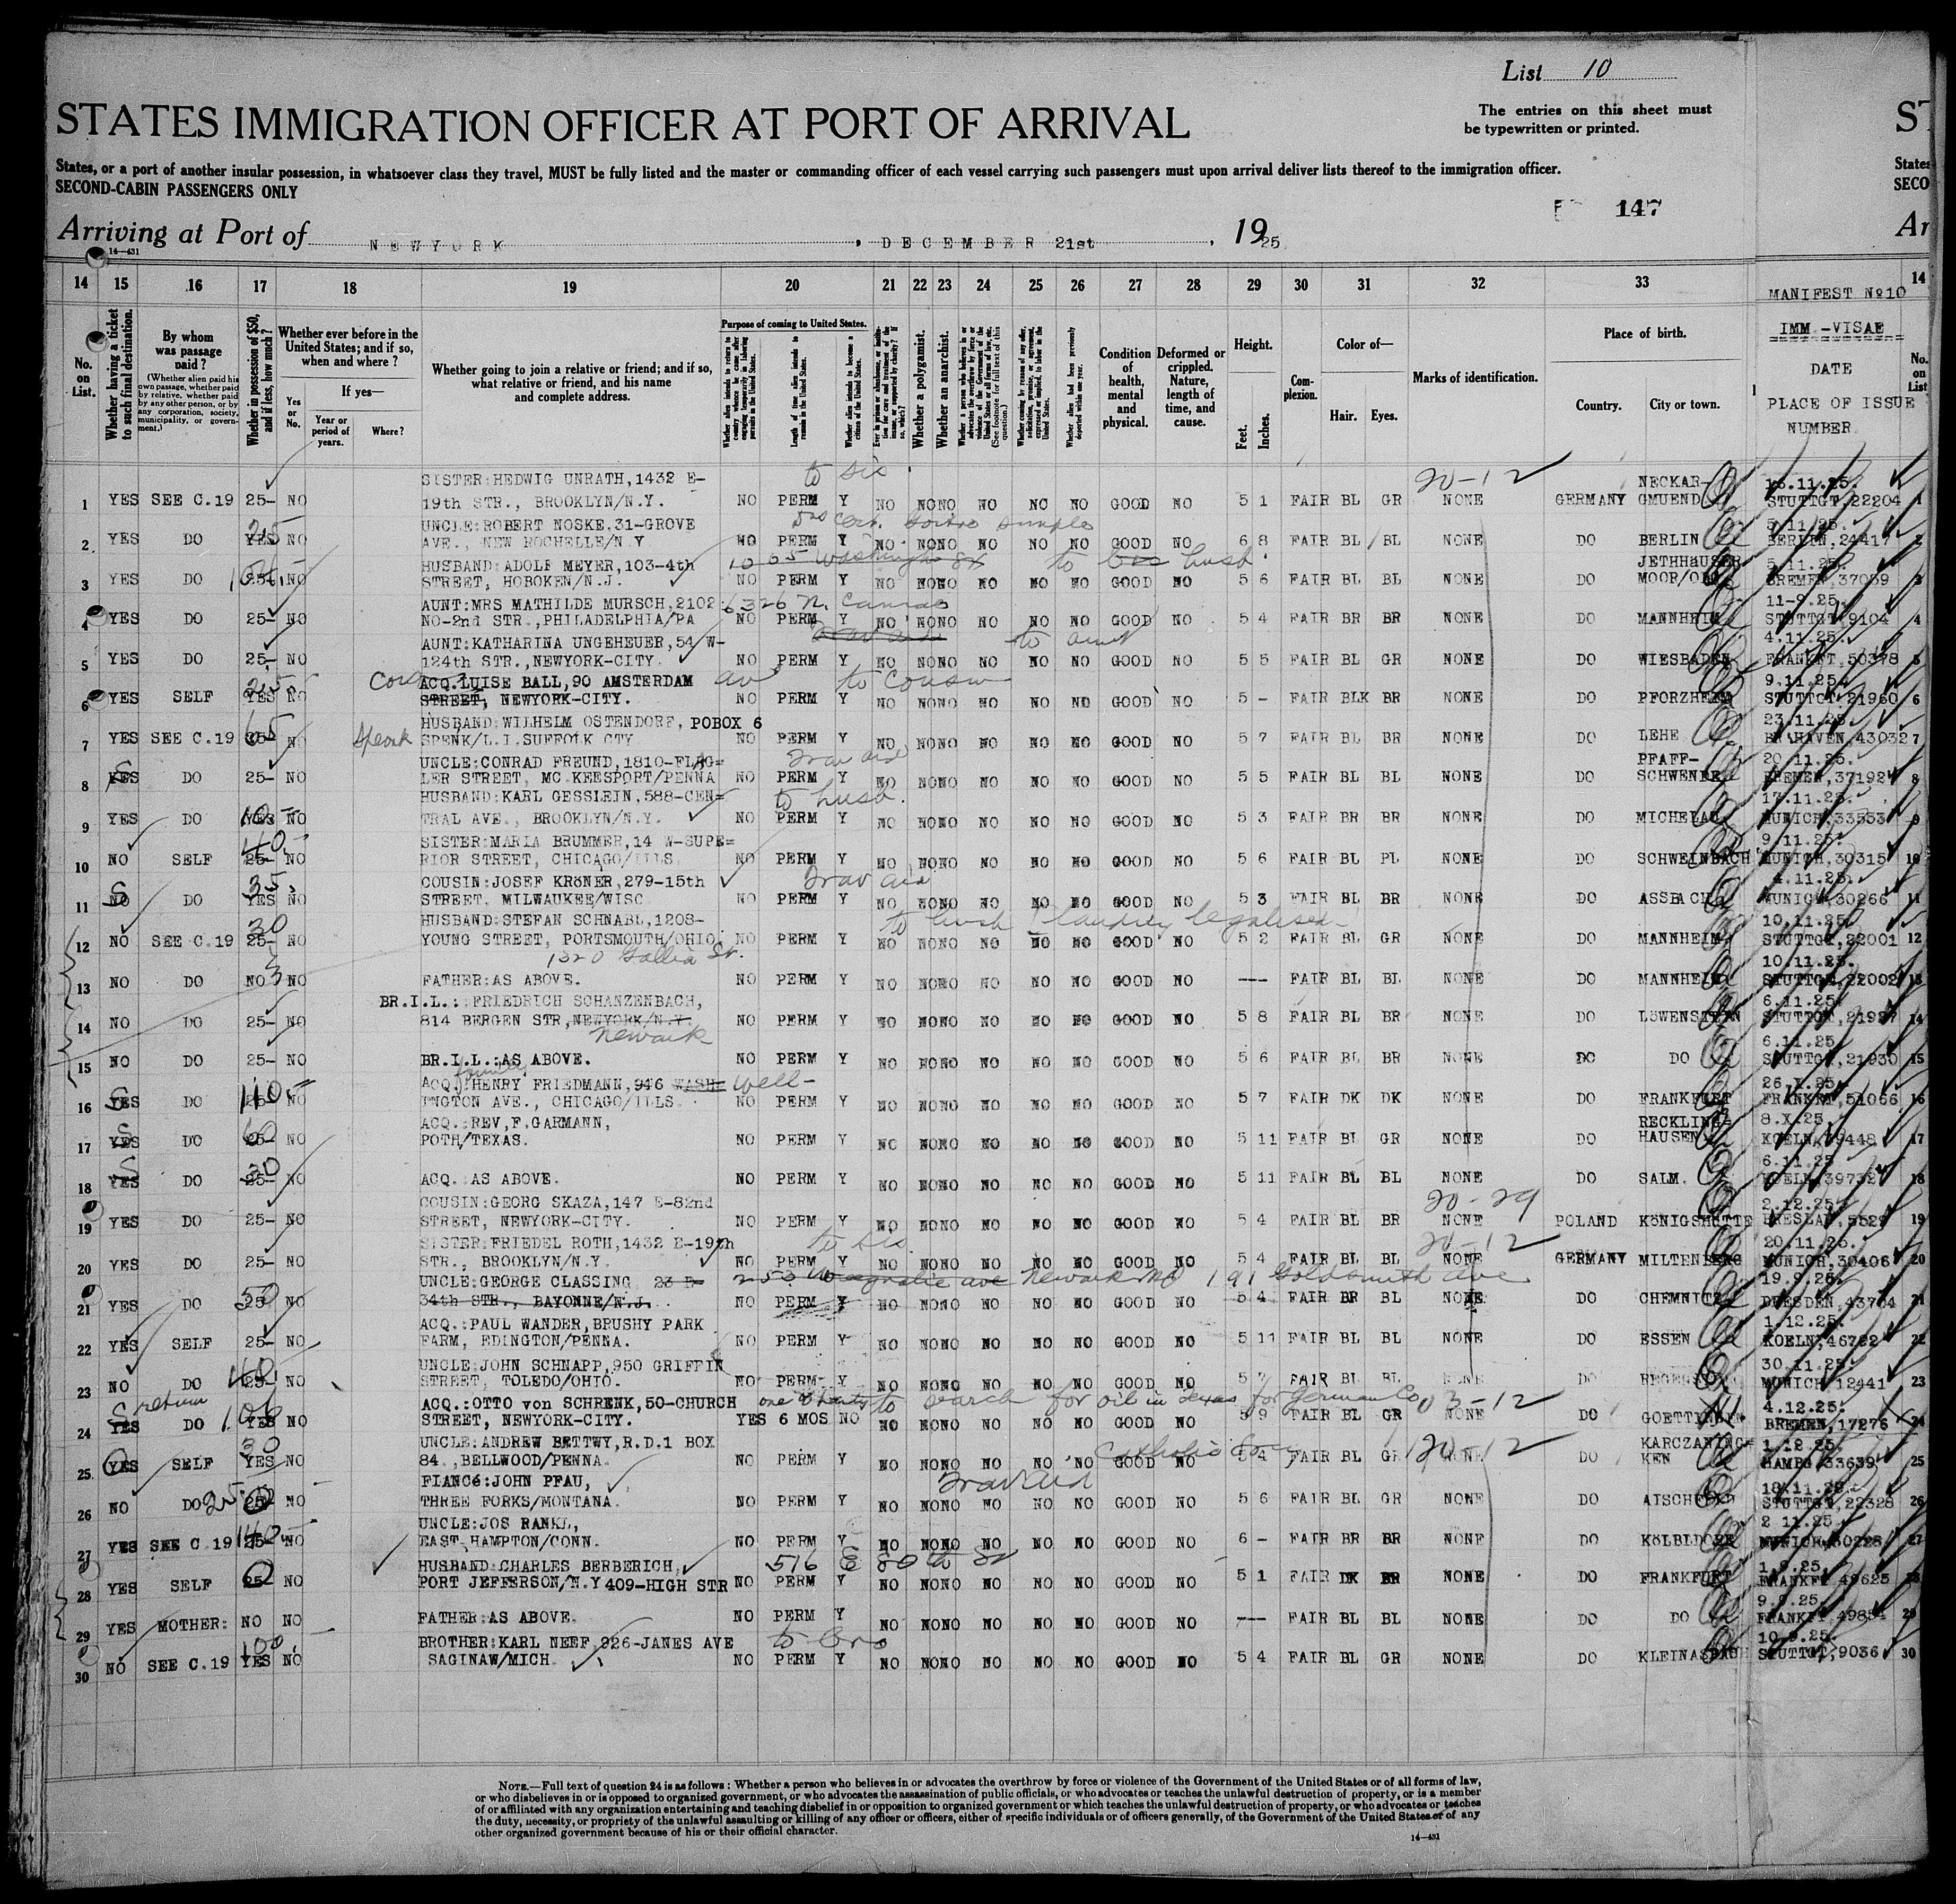 List 10
STATES IMMIGRATION OFFICER AT PORT OF ARRIVAL
The entries on this sheet must
be typewritten or printed.
States, or a port of another insular possession, in whatsoever class they travel, MUST be fully listed and the master or commanding officer of each vessel carrying such passengers must upon arrival deliver lists thereof to the immigration officer.
SECOND-CABIN PASSENGERS ONLY
147
Arriving at Port of NEWYORK, DECEMBER 21st, 1925
14—431
14 15 16 17 18 19 20 21 22 23 24 25 26 27 28 29 30 31 32 33
MANIFEST No10
IMM.-VISAE
DATE
PLACE OF ISSUE
NUMBER
No. on List.
Whether having a ticket to such final destination.
By whom was passage paid?
(Whether alien paid his own passage, whether paid by relative, whether paid by any other person, or by any corporation, society, municipality, or government.)
Whether in possession of $50, and if less, how much?
Whether ever before in the United States; and if so, when and where?
If yes—
Yes or No.
Year or period of years.
Where?
Whether going to join a relative or friend; and if so, what relative or friend, and his name and complete address.
Purpose of coming to United States.
Length of time alien intends to remain in the United States.
Whether alien intends to become a citizen of the United States.
Whether a polygamist.
Whether an anarchist.
Condition of health, mental and physical.
Deformed or crippled. Nature, length of time, and cause.
Height.
Feet. Inches.
Complexion.
Color of—
Hair. Eyes.
Marks of identification.
Place of birth.
Country. City or town.
to sis 20-12
SISTER:HEDWIG UNRATH,1432 E- NECKAR- 
1 YES SEE C.19 25- NO 19th STR., BROOKLYN/N.Y. NO PERM Y NO NO NO NO NO NO GOOD NO 5 1 FAIR BL GR NONE GERMANY GMUEND STUTTGT 22204 1
UNCLE:ROBERT NOSKE,31-GROVE 5.11.25.
2 YES DO YES NO AVE., NEW ROCHELLE/N.Y NO PERM Y NO NO NO NO NO NO GOOD NO 6 8 FAIR BL BL NONE DO BERLIN BERLIN,24417 2
HUSBAND:ADOLF MEYER,103-4th 1065 Washington St to husb. 5.11.25.
3 YES DO 25- NO STREET, HOBOKEN/N.J. NO PERM Y NO NO NO NO NO NO GOOD NO 5 6 FAIR BL BL NONE DO BREMEN,37059 3
AUNT:MRS MATHILDE MURSCH,2102 6326 N. Camac 11-9.25.
4 YES DO 25- NO NO-2nd STR.,PHILADELPHIA/PA NO PERM Y NO NO NO NO NO NO GOOD NO 5 4 FAIR BR BR NONE DO MANNHEIM STUTTGT,9104 4
AUNT:KATHARINA UNGEHEUER,54 W- to aunt 4.11.25.
5 YES DO 25- NO 124th STR.,NEWYORK-CITY. NO PERM Y NO NO NO NO NO NO GOOD NO 5 5 FAIR BL GR NONE DO WIESBADEN FRANKFT,50378 5
ACQ.LUISE BALL,90 AMSTERDAM av to cousin 9.11.25.
6 YES SELF YES NO STREET, NEWYORK-CITY. NO PERM Y NO NO NO NO NO NO GOOD NO 5 - FAIR BLK BR NONE DO PFORZHEIM STUTTGT 21960 6
HUSBAND:WILHELM OSTENDORF, POBOX 6 23.11.25.
7 YES SEE C.19 65 NO Speonk SPENK/L.I.SUFFOLK CTY NO PERM Y NO NO NO NO NO NO GOOD NO 5 7 FAIR BL BR NONE DO LEHE BR'HAVEN,43032 7
UNCLE:CONRAD FREUND,1810-FLAG= Trav aid PFAFF- 20.11.25.
8 YES DO 25- NO LER STREET, MC.KEESPORT/PENNA NO PERM Y NO NO NO NO NO NO GOOD NO 5 5 FAIR BL BL NONE DO BREMEN,37192 8
HUSBAND:KARL GESSLEIN,588-CEN= to husb. 17.11.25.
9 YES DO YES NO TRAL AVE., BROOKLYN/N.Y. NO PERM Y NO NO NO NO NO NO GOOD NO 5 3 FAIR BR BR NONE DO MICHELAU MUNICH,33553 9
SISTER:MARIA BRUMMER,14 W-SUPE= 9.11.25.
10 NO SELF 25- NO RIOR STREET, CHICAGO/ILLS. NO PERM Y NO NO NO NO NO NO GOOD NO 5 6 FAIR BL PL NONE DO SCHWEINBACH MUNICH,30315 10
COUSIN:JOSEF KRÖNER,279-15th Trav aid 4.11.25.
11 NO DO YES NO STREET, MILWAUKEE/WISC NO PERM Y NO NO NO NO NO NO GOOD NO 5 3 FAIR BL BR NONE DO ASSBACH MUNICH,30266 11
HUSBAND:STEFAN SCHNABL,1208- to husb 10.11.25.
12 NO SEE C.19 25- NO YOUNG STREET, PORTSMOUTH/OHIO NO PERM Y NO NO NO NO NO NO GOOD NO 5 2 FAIR BL GR NONE DO MANNHEIM STUTTGT,22001 12
1320 Gallia St. 10.11.25.
13 NO DO NO NO FATHER:AS ABOVE. NO PERM Y NO NO NO NO NO NO GOOD NO --- FAIR BL BL NONE DO MANNHEIM STUTTGT,22002 13
BR.I.L.:FRIEDRICH SCHANZENBACH, 6.11.25.
14 NO DO 25- NO 814 BERGEN STR,NEWYORK/N.Y. NO PERM Y NO NO NO NO NO NO GOOD NO 5 8 FAIR BL BR NONE DO LÖWENSTEIN 14
Newark 6.11.25
15 NO DO 25- NO BR.I.L.:AS ABOVE. NO PERM Y NO NO NO NO NO NO GOOD NO 5 6 FAIR BL BR NONE DO DO STUTTGT,21930 15
ACQ.:HENRY FRIEDMANN,946 WASH= Well- 26.X.25.
16 YES DO 110 NO INGTON AVE., CHICAGO/ILLS. NO PERM Y NO NO NO NO NO NO GOOD NO 5 7 FAIR DK DK NONE DO FRANKFURT FRANKFT,51066 16
ACQ.:REV,F.GARMANN, RECKLING= 8.X.25.
17 YES DO 25- NO POTH/TEXAS. NO PERM Y NO NO NO NO NO NO GOOD NO 5 11 FAIR BL GR NONE DO HAUSEN 17
6.11.25
18 YES DO 25- NO ACQ.:AS ABOVE. NO PERM Y NO NO NO NO NO NO GOOD NO 5 11 FAIR BL BL NONE DO SALM. KOELN,39732 18
COUSIN:GEORG SKAZA,147 E-82nd 20-29 2.12.25.
19 YES DO 25- NO STREET, NEWYORK-CITY. NO PERM Y NO NO NO NO NO NO GOOD NO 5 4 FAIR BL BR NONE POLAND KÖNIGSHÜTTE BRESLAU,5529 19
SISTER:FRIEDEL ROTH,1432 E-19th to sis. 20-12 20.11.25.
20 YES DO 25- NO STR., BROOKLYN/N.Y. NO PERM Y NO NO NO NO NO NO GOOD NO 5 4 FAIR BL BL NONE GERMANY MILTENBERG MUNICH,30406 20
UNCLE:GEORGE CLASSING 23 E- 253 Newark NJ 191 Goldsmith ave 19.9.25.
21 YES DO 50 NO 34th STR., BAYONNE/N.J. NO PERM Y NO NO NO NO NO NO GOOD NO 5 4 FAIR BR BL NONE DO CHEMNITZ DRESDEN,43704 21
ACQ.:PAUL WANDER,BRUSHY PARK 1.12.25.
22 YES SELF 25- NO FARM, EDINGTON/PENNA. NO PERM Y NO NO NO NO NO NO GOOD NO 5 11 FAIR BL BL NONE DO ESSEN KOELN,46762 22
UNCLE:JOHN SCHNAPP,950 GRIFFIN 30.11.25.
23 NO DO 25- NO STREET, TOLEDO/OHIO. NO PERM Y NO NO NO NO NO NO GOOD NO 5 FAIR BL BL NONE DO MUNICH,12441 23
return ACQ.:OTTO von SCHRENK,50-CHURCH to search for oil in Texas for German Co 03-12 4.12.25.
24 YES DO YES NO STREET, NEWYORK-CITY. YES 6 MOS NO NO NO NO NO NO NO GOOD NO 5 9 FAIR BL GR NONE DO GOETTINGEN BREMEN,17276 24
UNCLE:ANDREW BETTWY,R.D.1 BOX 20-12 KARCZANING= 1.12.25.
25 YES SELF YES NO 84.,BELLWOOD/PENNA. NO PERM Y NO NO NO NO NO NO GOOD NO 5 4 FAIR BL GR NONE DO KEN HAMBG,33639 25
FIANCé:JOHN PFAU, Trav aid 18.11.25.
26 NO DO 25- NO THREE FORKS/MONTANA. NO PERM Y NO NO NO NO NO NO GOOD NO 5 6 FAIR BL GR NONE DO STUTTGT,22328 26
UNCLE:JOS RANKL, 2 11.25.
27 YES SEE C.19 25- NO EAST HAMPTON/CONN. NO PERM Y NO NO NO NO NO NO GOOD NO 6 - FAIR BR BR NONE DO KÖLBLDORF 27
HUSBAND:CHARLES BERBERICH, 516 E 80th St 1.9.25.
28 YES SELF 25- NO PORT JEFFERSON/N.Y 409-HIGH STR NO PERM Y NO NO NO NO NO NO GOOD NO 5 1 FAIR DK BR NONE DO FRANKFURT FRANKFT 49625 28
9.9.25.
29 YES MOTHER: NO NO FATHER:AS ABOVE. NO PERM Y NO NO NO NO NO NO GOOD NO --- FAIR BL BL NONE DO DO FRANKFT,49854 29
100. BROTHER:KARL NEEF,926-JANES AVE to bro 10.9.25.
30 NO SEE C.19 YES NO SAGINAW/MICH. NO PERM Y NO NO NO NO NO NO GOOD NO 5 4 FAIR BL GR NONE DO KLEINASPACH STUTTGT,9036 30
NOTE.—Full text of question 24 is as follows: Whether a person who believes in or advocates the overthrow by force or violence of the Government of the United States or of all forms of law,
or who disbelieves in or is opposed to organized government, or who advocates the assassination of public officials, or who advocates or teaches the unlawful destruction of property, or is a member
of or affiliated with any organization entertaining and teaching disbelief in or opposition to organized government or which teaches the unlawful destruction of property, or who advocates or teaches
the duty, necessity, or propriety of the unlawful assaulting or killing of any officer or officers, either of specific individuals or of officers generally, of the Government of the United States or of any
other organized government because of his or their official character.
14—431